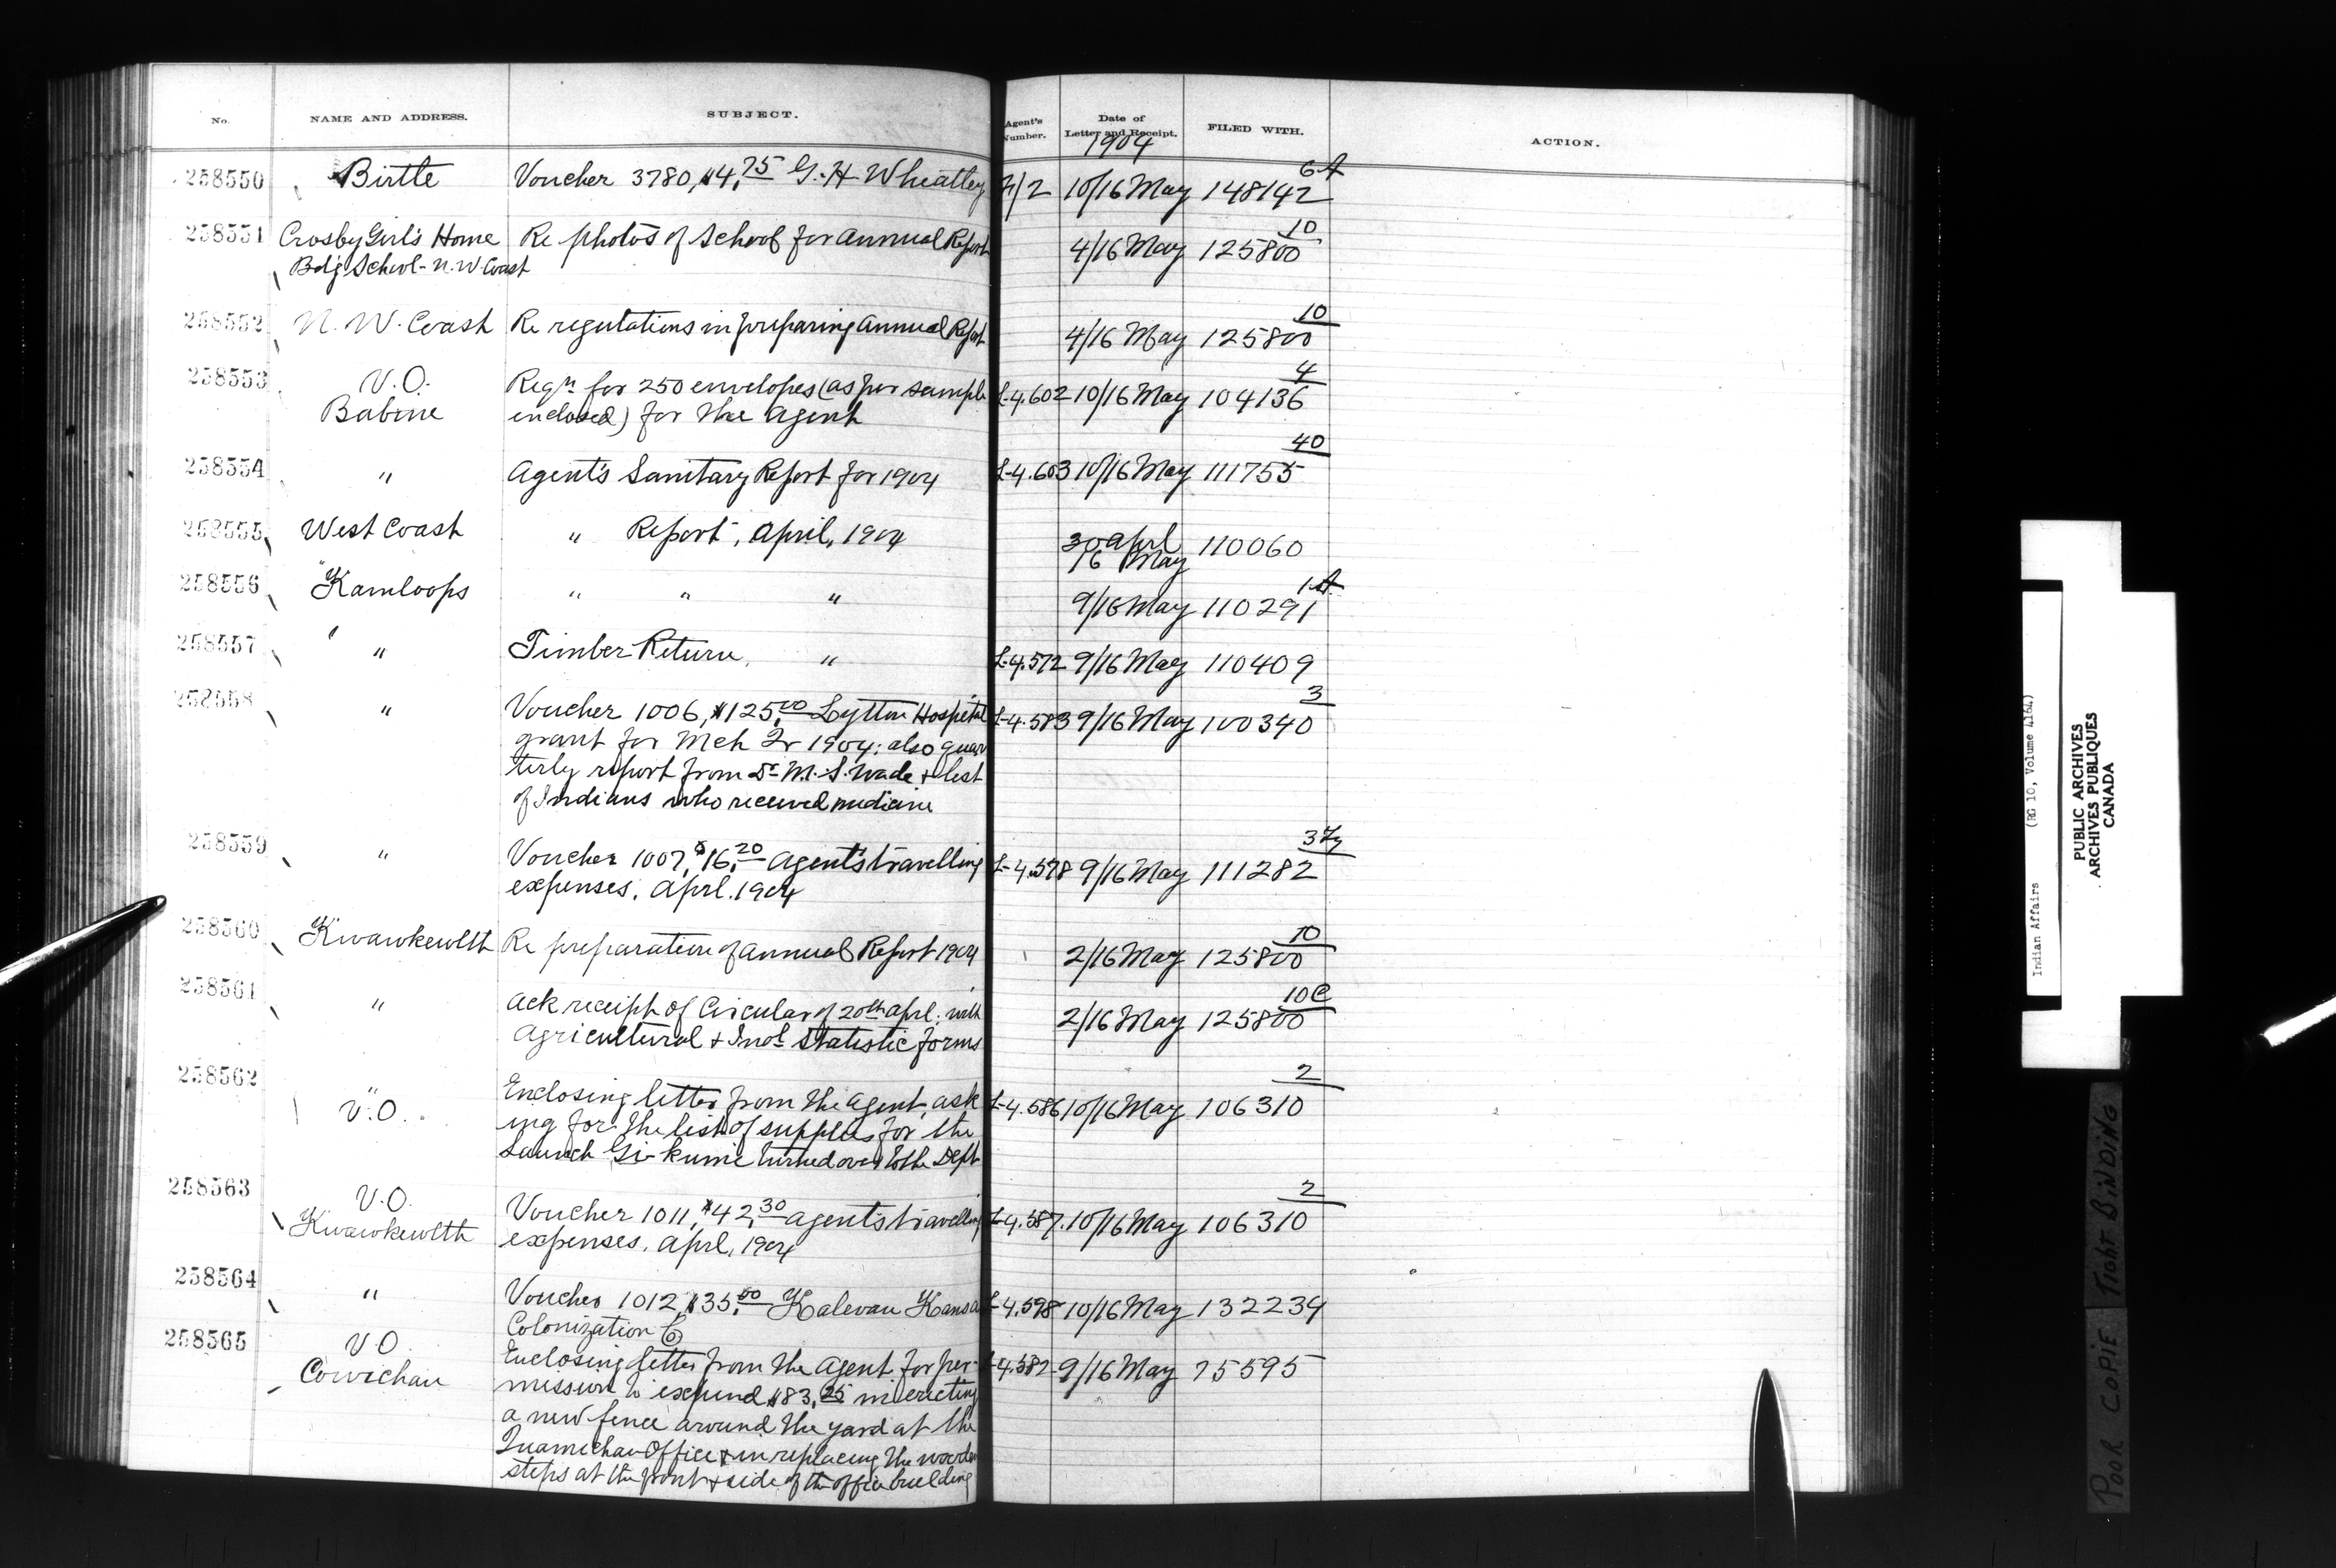 No. NAME AND ADDRESS. SUBJECT. Agent's Number. Date of Letter and Receipt. FILED WITH. ACTION.
1904
258550 Birtle Voucher 3780, $4.75 G. H Wheatley 2/2 10/16 May 148142 6A
258551 Crosby Girl's Home Re photos of School for Annual Report 4/16 May 125800 10
Bdg School - N. W Coast
258552 N. W. Coast Re regulations in preparing Annual Report 4/16 May 125800 10
258553 V.O. Reqn for 250 envelopes (as per sample L-4.602 10/16 May 104136 4
Babine enclosed) for the Agent
258554 " Agent's Sanitary Report for 1904 L-4.603 10/16 May 111755 40
258555 West Coast " Report, April, 1904 30 Aprl 110060
16 May
258556 Kamloops " " " 9/16 May 110291 1A
258557 " Timber Return, " L-4.572 9/16 May 110409
258558 " Voucher 1006, $125.00 Lytton Hospital L-4.583 9/16 May 100340 3
grant for Mch Qr 1904; also quar
terly report from Dr M. S. Wade & list
of Indians who received medicine
258559 " Voucher 1007, $16.20 Agent's travelling L-4.578 9/16 May 111282 3
expenses, Aprl. 1904
258560 Kwawkewlth Re preparation of Annual Report 1904 2/16 May 125800 10
258561 " Ack receipt of Circular of 20th Aprl; with 2/16 May 125800 10C
Agricultural & Indl Statistic forms
258562 " V.O. Enclosing letter from the Agent, ask L-4.586 10/16 May 106310 2
ing for the list of supplies for the
Launch Gi-kumi turned over to the Dept
258563 V.O. Voucher 1011, $42.30 Agent's travelling L-4.587. 10/16 May 106310 2
Kwawkewlth expenses, Aprl, 1904
258564 " Voucher 1012, $35.00 Kalevan Kansa L-4.598 10/16 May 132234
Colonization Co
258565 V.O. Enclosing letter from the Agent for per- L-4.582 9/16 May 75595
Cowichan mission to expend $83.25 in erecting
a new fence around the yard at the
Quamichan Office & in replacing the wooden
steps at the front & side of the office building
Indian Affairs (RG 10, Volume 4164)
PUBLIC ARCHIVES
ARCHIVES PUBLIQUES
CANADA
POOR COPIE TIGHT BINDING